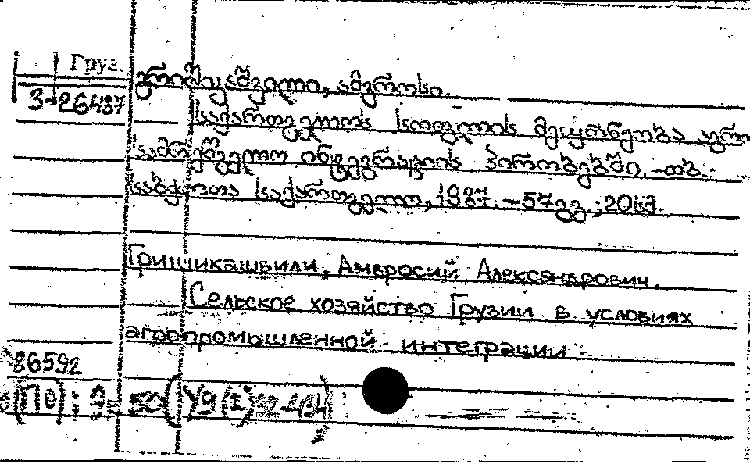 Груз.
3-26487
გრიშიკაშვილი, ამბროსი.
საქართველოს სოფლის მეურნეობა აგრო
სამრეწველო ინტეგრაციის პირობებში. -თბ.:
საბჭოთა საქართველო, 1987. -57გვ.; 20სმ.
Гришикашвили, Амвросий Александрович.
Сельское хозяйство Грузии в условиях
агропромышленной интеграции.
86592